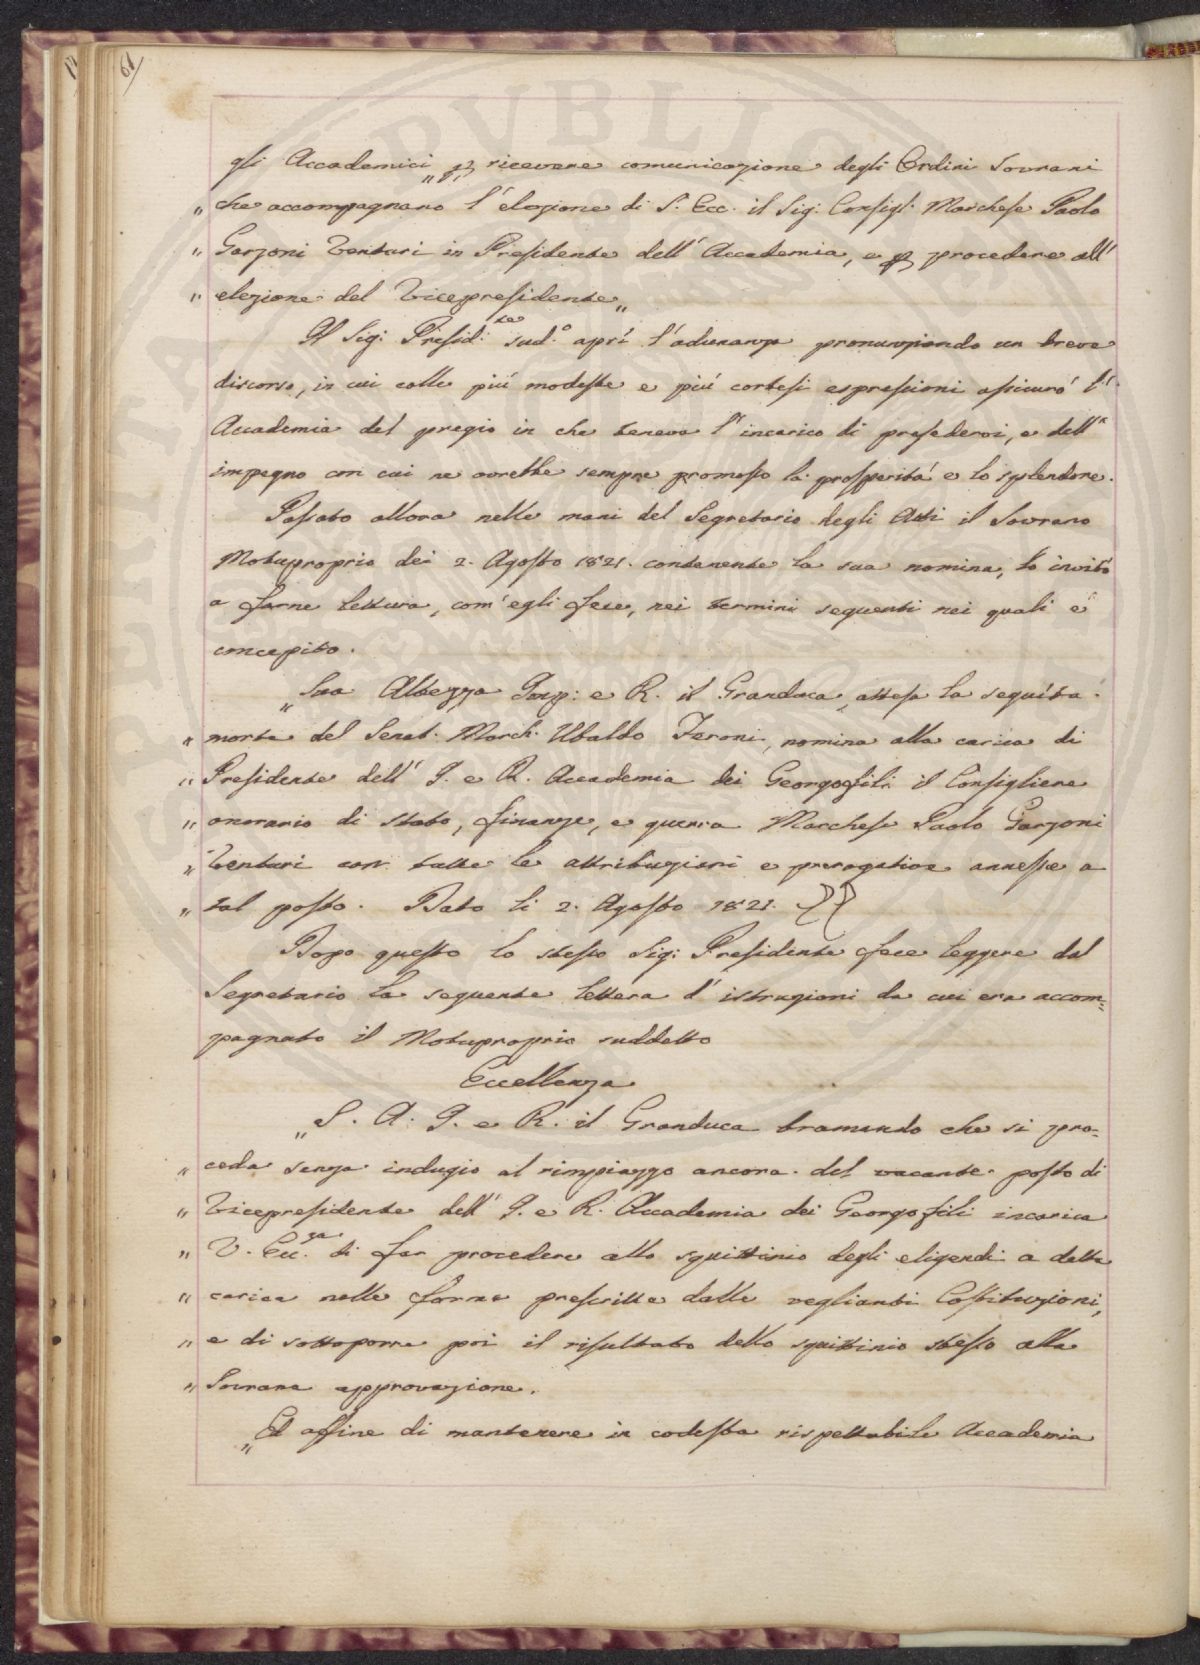 61
gli Accademici „ p ricevere comunicazione degli Ordini Sovrani
„ che accompagnano l'elezione di S. Ecc. il Sig. Consigl. Marchese Paolo
„ Garzoni Venturi in Presidente dell'Accademia, e p procedere all'
„ elezione del Vicepresidente „
Il Sig: Presid:te sud.o aprì l'adunanza pronunziando un breve
discorso, in cui colle più modeste e più cortesi espressioni assicurò l'
Accademia del pregio in che teneva l'incarico di presedervi, e dell'
impegno con cui ne avrebbe sempre promosso la prosperità e lo splendore.
Passato allora nelle mani del Segretario degli Atti il Sovrano
Motuproprio dei 2. Agosto 1821. contenente la sua nomina, lo invitò
a farne lettura, com'egli fece, nei termini seguenti nei quali è
concepito.
„ Sua Altezza Imp: e R. il Granduca, attesa la seguita
„ morte del Senat. March. Ubaldo Feroni, nomina alla carica di
„ Presidente dell'I. e R. Accademia dei Georgofili il Consigliere
„ onorario di stato, finanze, e guerra Marchese Paolo Garzoni
„ Venturi con tutte le attribuzioni e prerogative annesse a
„ tal posto. Dato li 2. Agosto 1821.
Dopo questo lo stesso Sig: Presidente fece leggere dal
Segretario la seguente lettera d'istruzioni da cui era accom=
pagnato il Motuproprio suddetto
Eccellenza
„ S. A. I. e R. il Granduca bramando che si pro=
„ ceda senza indugio al rimpiazzo ancora del vacante posto di
„ Vicepresidente dell'I. e R. Accademia dei Georgofili incarica
„ V. Ecc.za di far procedere allo squittinio degli eligendi a detta
„ carica nelle forme prescritte dalle veglianti Costituzioni,
„ e di sottoporre poi il risultato dello squittinio stesso alla
„ Sovrana approvazione.
„ Ed affine di mantenere in codesta rispettabile Accademia